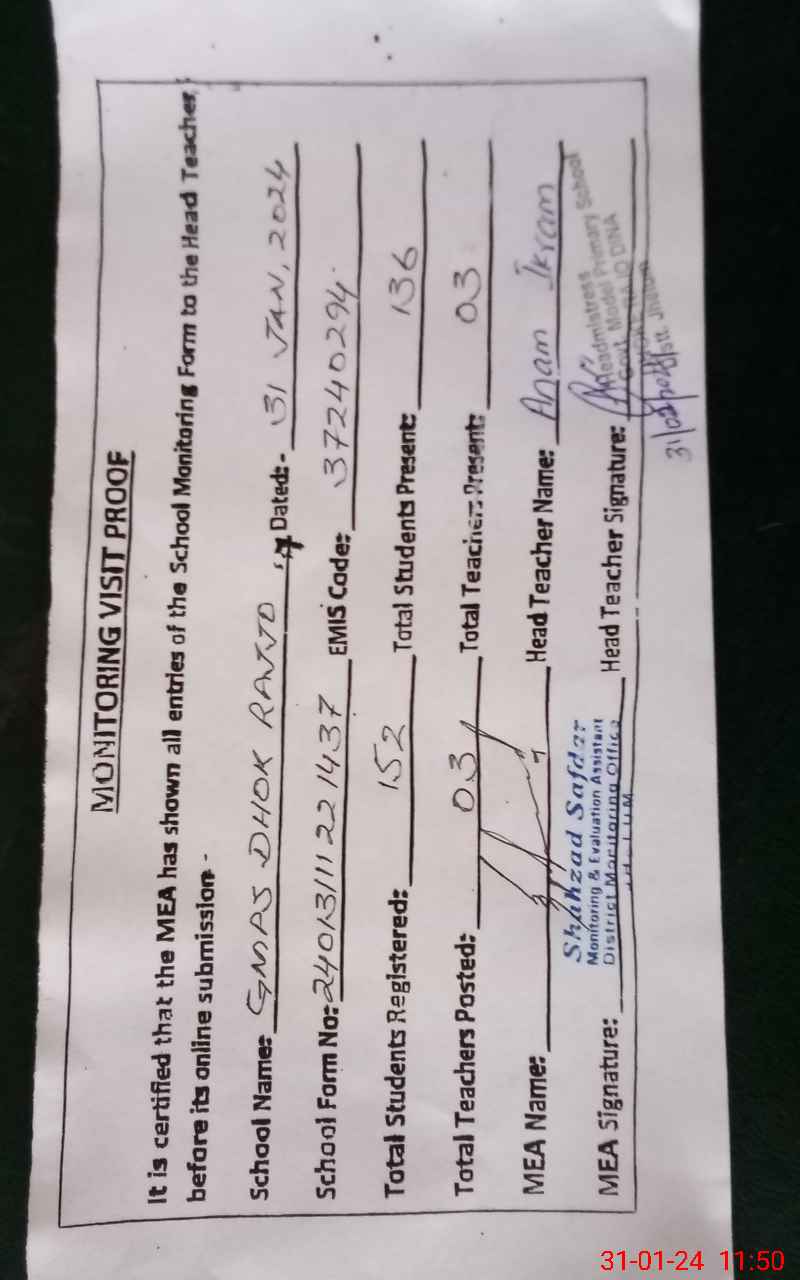 MONITORING VISIT PROOF
It is certified that the MEA has shown all entries of the School Monitoring Form to the Head Teacher,
before its online submission -
School Name: GMPS DHOK RAJJO Dated:- 31 JAN, 2024
School Form No: 24013111221437 EMIS Code: 37240294
Total Students Registered: 152 Total Students Present: 136
Total Teachers Posted: 03 Total Teachers Present: 03
MEA Name: Head Teacher Name: Anam Ikram
Shahzad Safdar
Monitoring & Evaluation Assistant
District Monitoring Office
MEA Signature: Head Teacher Signature:
Headmistress
Govt. Model Primary School
DINA
Distt. Jhelum
31-01-24 11:50